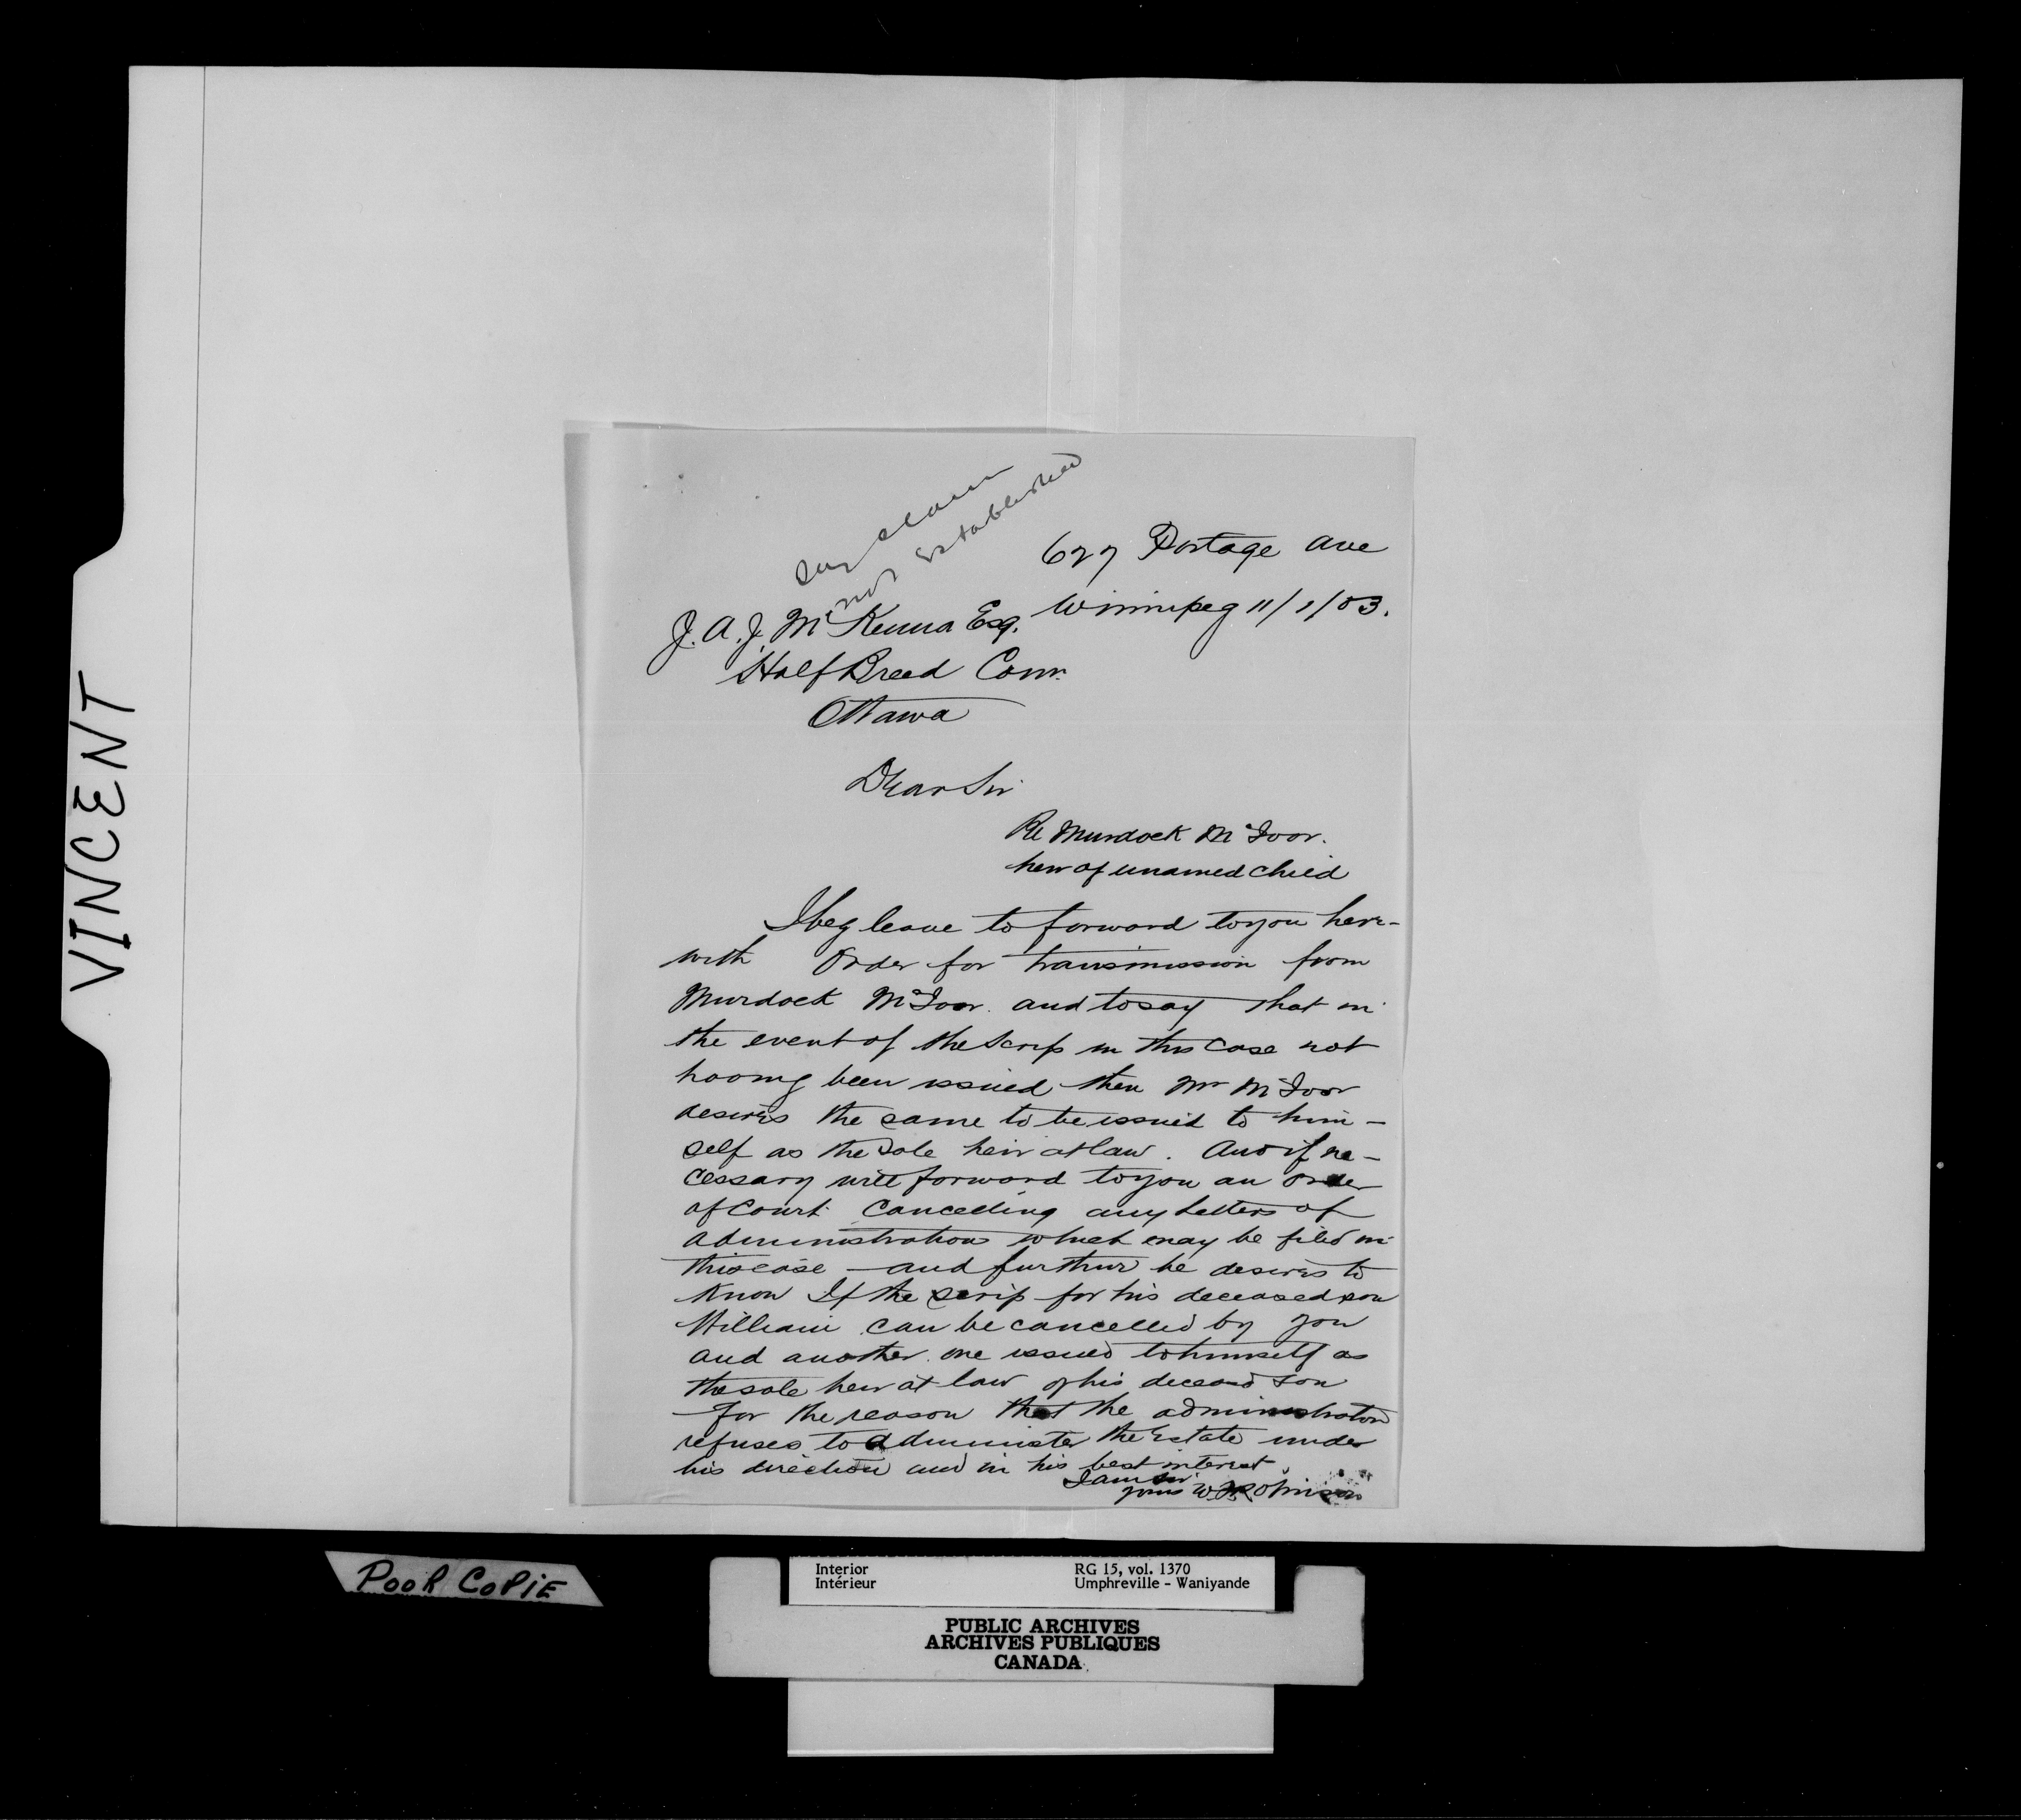 VINCENT
say claim
not Established
627 Portage Ave
Winnipeg 11/1/03.
J. A. J. McKenna Esq.
Half Breed Com.
Ottawa
Dear Sir
Re Murdock McIvor.
heir of unamed child
I beg leave to forward to you here-
with Order for transmission from
Murdock McIvor. and to say that in
the event of the Scrip in this case not
having been issued then Mr McIvor
desires the same to be issued to him-
self as the sole heir at law. And if ne-
cessary will forward to you an order
of Court Cancelling any Letters of
administration which may be filed in
this case - and further he desires to
know If the scrip for his deceased son
William can be cancelled by you
and another one issued to himself as
the sole heir at law of his deceasd son
for the reason that the administrator
refuses to administer the Estate under
his direction and in his best interest.
I am Sir
yours
POOR COPIE
Interior RG 15, vol. 1370
Intérieur Umphreville - Waniyande
PUBLIC ARCHIVES
ARCHIVES PUBLIQUES
CANADA